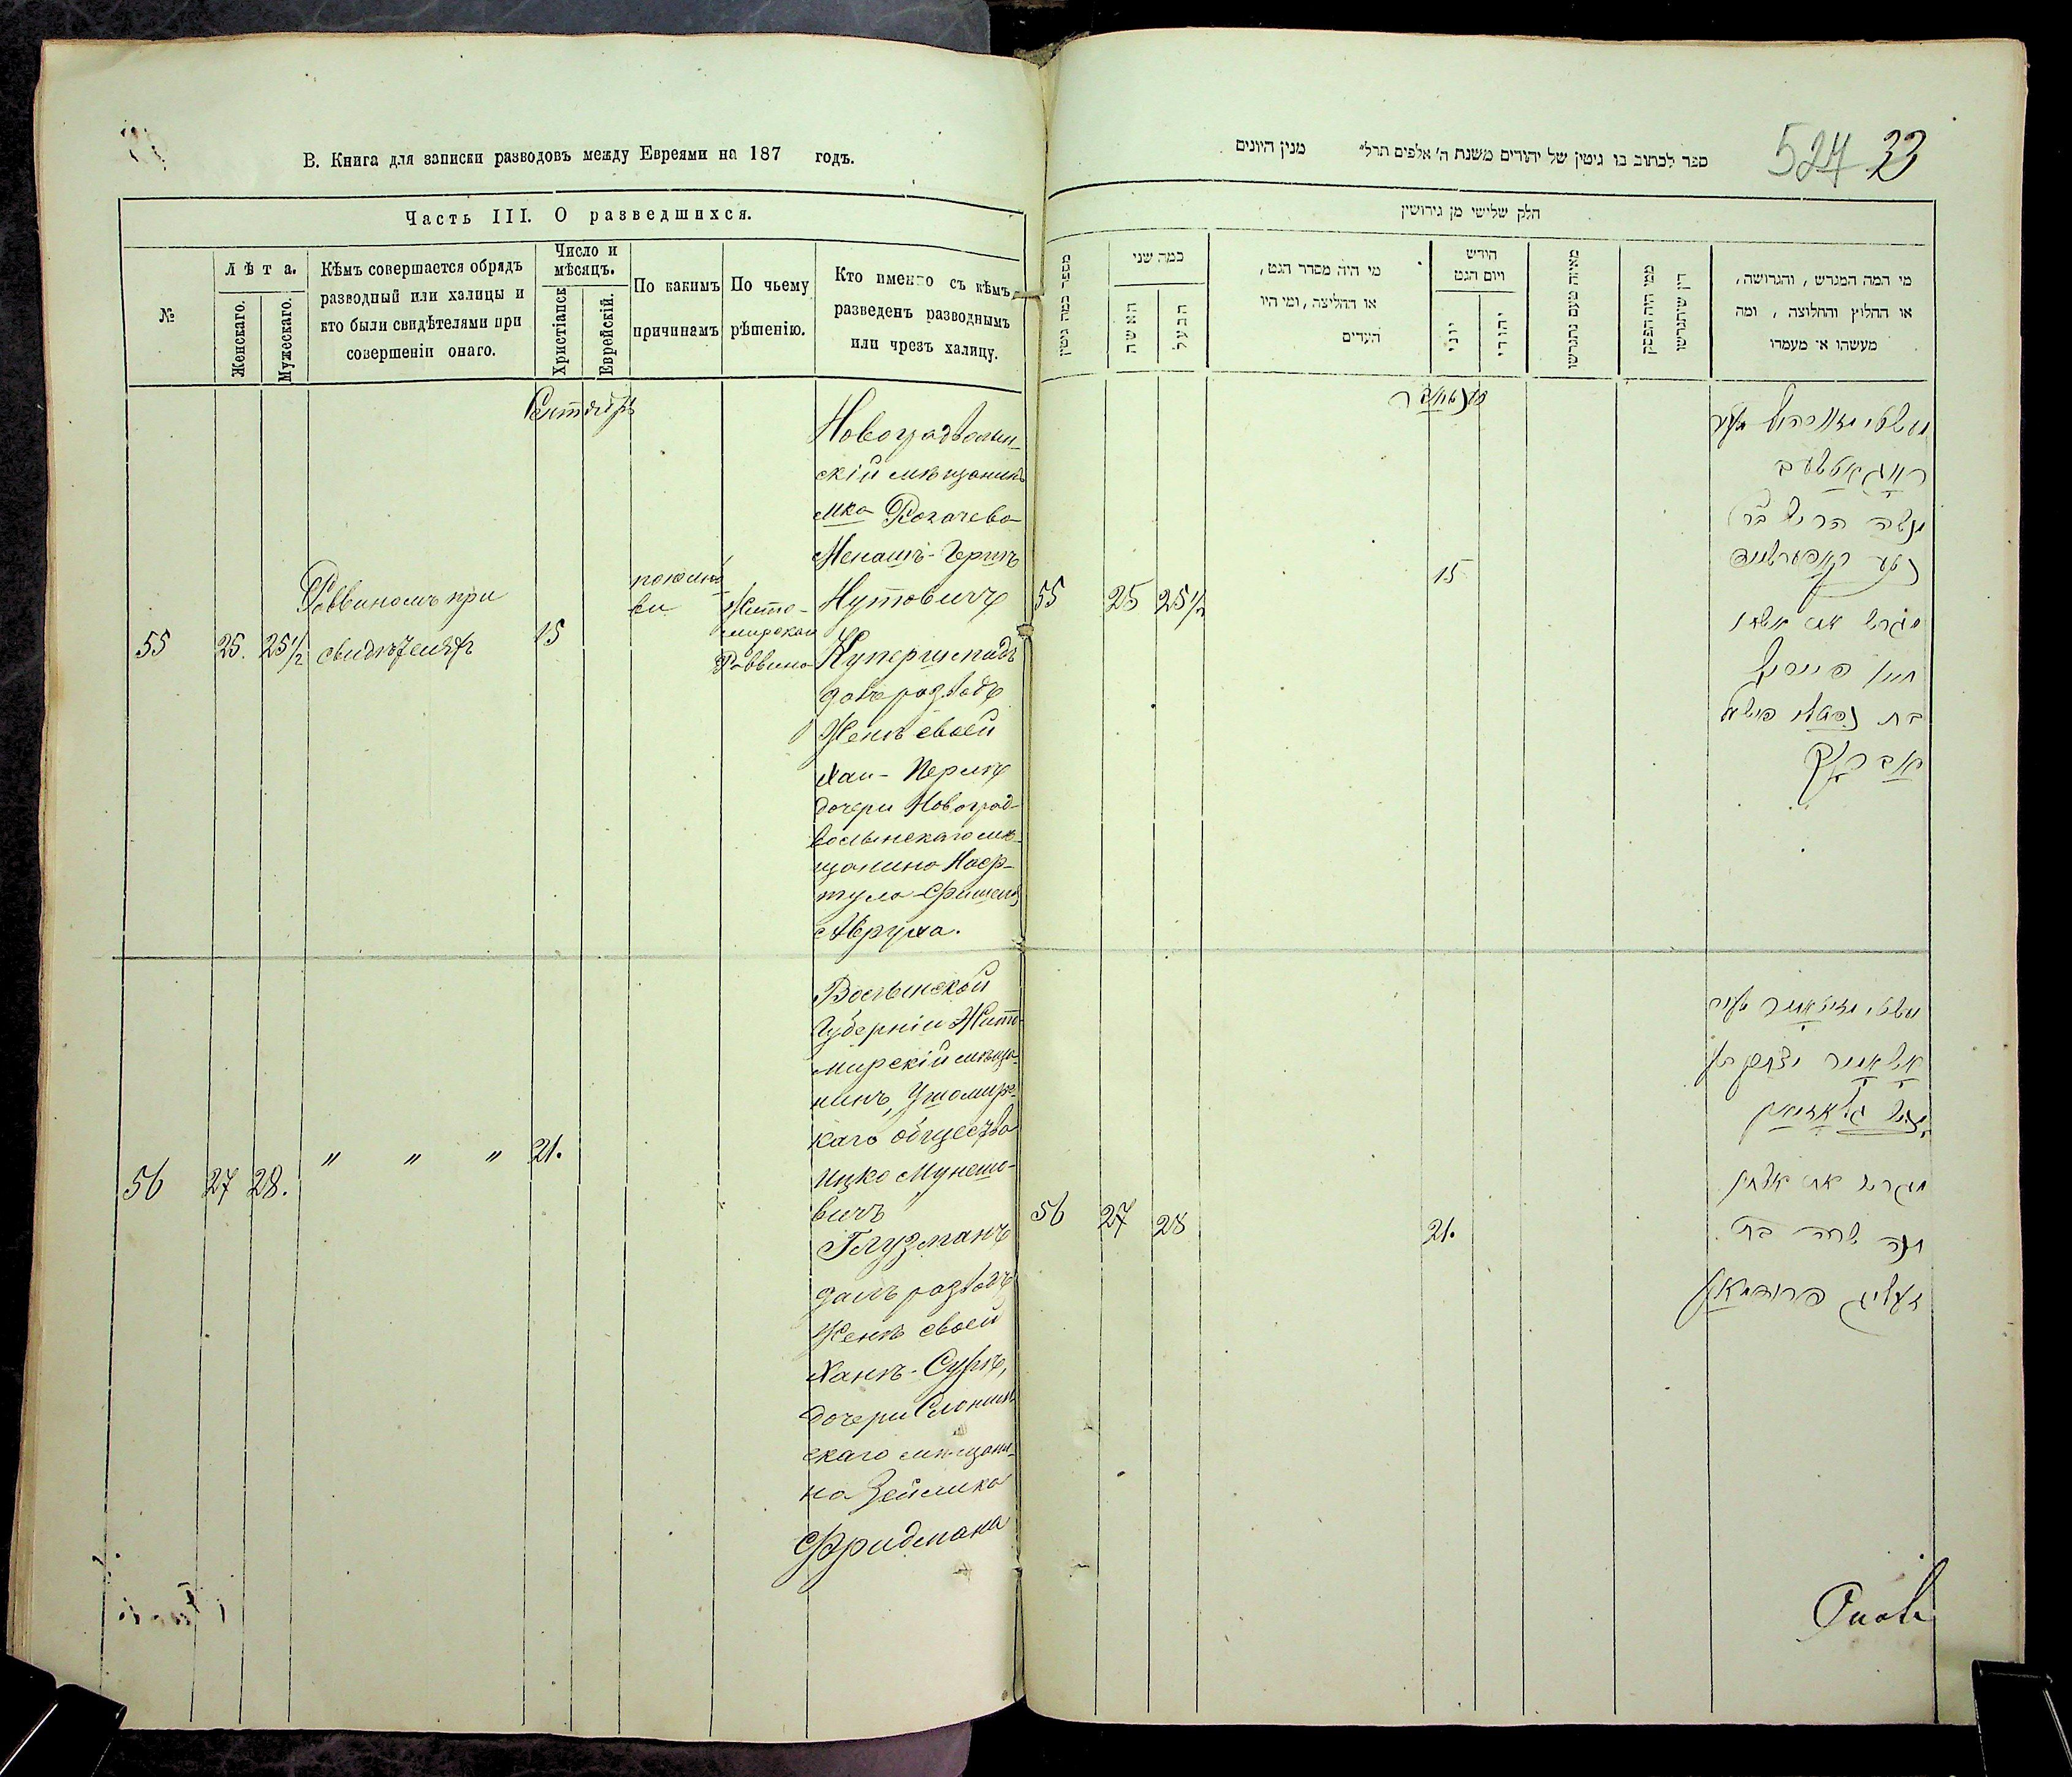 В. Книга для записки разводовъ между Евреями на 187 годъ.
Часть III. О разведшихся.
№
Лѣта.
Женскаго.
Мужескаго.
Кѣмъ совершается обрядъ
разводный или халицы и
кто были свидѣтелями при
совершеніи онаго.
Число и
мѣсяцъ.
Христіанск
Еврейскій.
По какимъ
причинамъ
По чьему
рѣшенію.
Кто именно съ кѣмъ
разведенъ разводнымъ
или чрезъ халицу.
Сентябрь
55
25.
25 1/2
Раввиномъ при
свидѣтеляхъ
15
Жито-
мирскаго
Раввина
Новоградволын
скій мѣщанинъ
мка Рогачева
Менашъ-Гершъ
Нутовичъ
Купершмидъ
далъ разводъ
Женѣ своей
Хаи-Перлѣ
дочери Новоград-
волынскаго мѣ-
щанина Наф-
тула-Фишеля
Авруха.
56
27
28.
" " "
21.
Волынской
Губерніи Жито-
мирскій мѣща-
нинъ, Ушомирс-
каго общества
Ицко
вичъ
Глузманъ
далъ разводъ
Женѣ своей
Ханѣ-Сурѣ,
дочери Слонимъ
скаго мѣщани-
на Зейлика
Фридмана
ספר לכתוב בו גיטין של יהודים משנת ה' אלפים תרל" מנין היונים
527 33
חלק שלישי מן גירושין
מספר כמה גיטין
כמה שני
האשה
הבעל
מי היה מסדר הגט,
או החליצה, ומי היו
העדים
חודש
ויום הגט
יוני
יהודי
מאיזה טעם נתגרשו
ממי היה הפסק
דין שיתגרשו
מי המה המגרש, והגרושה,
או החלוץ והחלוצה, ומה
מעשהו או מעמדו
55
25
25 1/2
15
מנשה הירש בר
נטע קופערשמיד
מגרש את אשתו
חיה פערל
בת נפתלי פישל
אברוך
56
27
28
21.
מגרש את אשתו
חנה שרה בת
זעליג פרידמאן